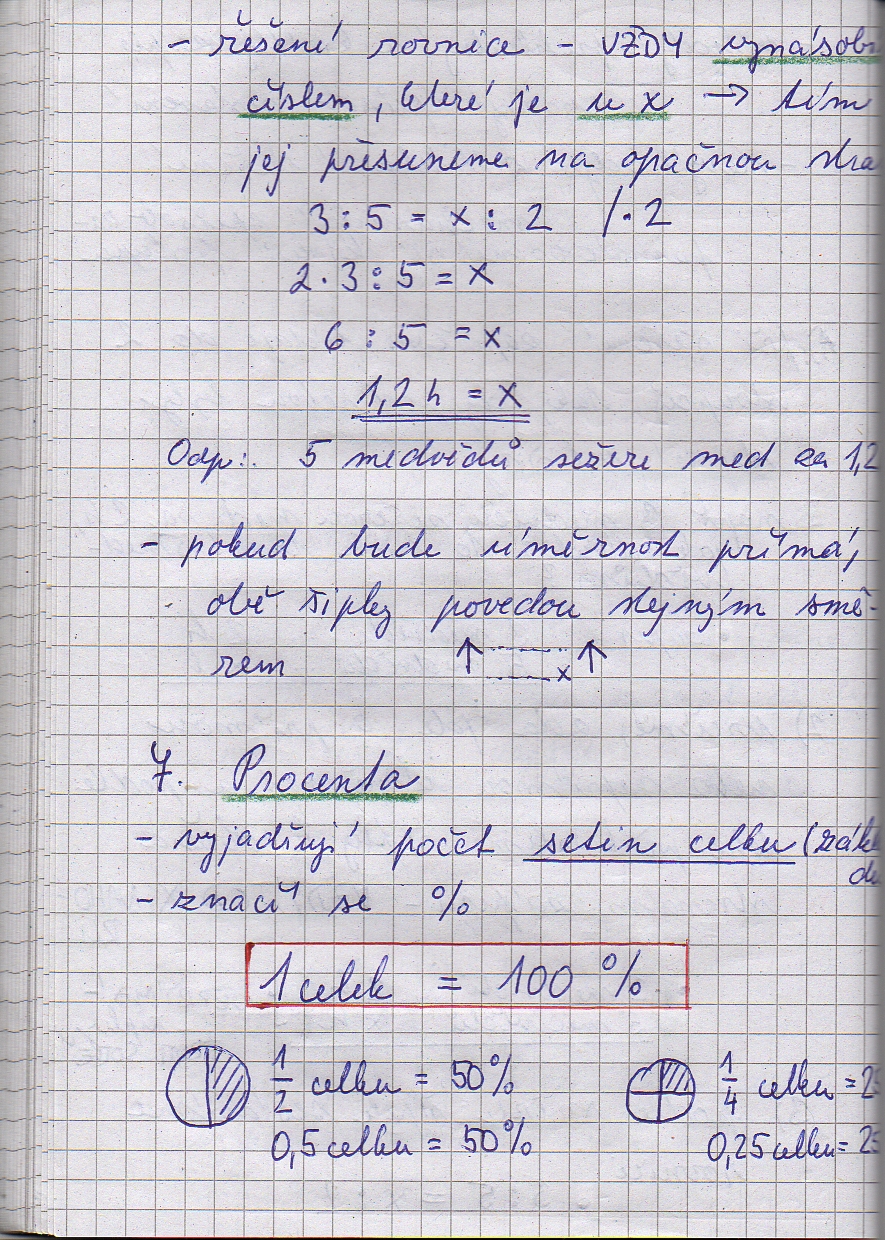 - řešení rovnice - VŽDY vynásob
číslem, které je u x → tím
jej přesuneme na opačnou stra
3 : 5 = x : 2 / · 2
2 · 3 : 5 = x
6 : 5 = x
1,2 h = x
Odp.: 5 medvědů sežere med za 1,2
- pokud bude úměrnost přímá,
obě šipky povedou stejným smě-
rem ↑ ↑ x
7. Procenta
- vyjadřují počet setin celku (zákl
du
- značí se %
1 celek = 100 %
1/2 celku = 50% 1/4 celku = 25
0,5 celku = 50% 0,25 celku = 25